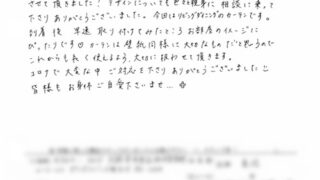 させて頂きました！デザインについても色々と親身に相談に乗って
下さりありがとうございました。今回はリビングダイニングのカーテンです。
到着後 早速 取り付けてみたところ お部屋のイメージに
ぴったりです♡ カーテンは壁紙同様に大切なものだと思うので
これからも長く使えるよう、大切に扱わせて頂きます。
コロナで大変な中ご対応を下さりありがとうございました
皆様もお身体ご自愛下さいませ…